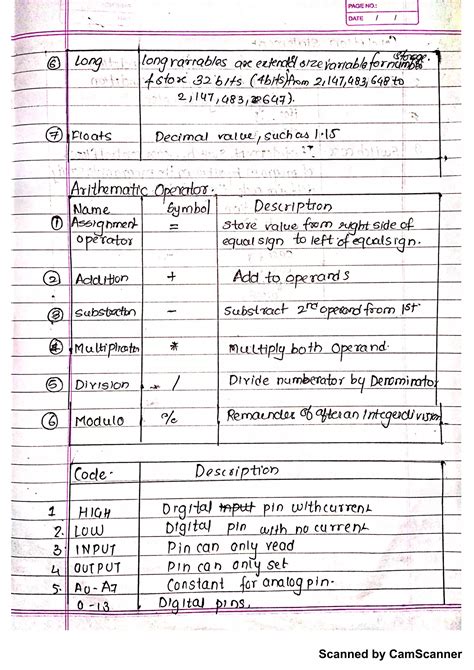 PAGE NO.:
DATE / /
6 Long long variables are extended size variable for number storage
& store 32 bits (4bits) from 2,147,483,648 to
2,147,483,647).
7 Floats Decimal value, such as 1.15
Arithematic Operator.
Name Symbol Description
1 Assignment = store value from right side of
operator equal sign to left of eqcal sign.
2 Addition + Add to operands
3 Substraction - Substract 2nd operand from 1st
4 Multiplication * Multiply both Operand
5 Division / Divide numberator by Denominator
6 Modulo % Remainder of after an Integer division
Code. Description
1 HIGH Digital input pin with current
2. LOW Digital pin with no current
3. INPUT Pin can only read
4 OUTPUT Pin can only set
5. A0-A7 Constant for analog pin.
0-13 Digital pins.
Scanned by CamScanner